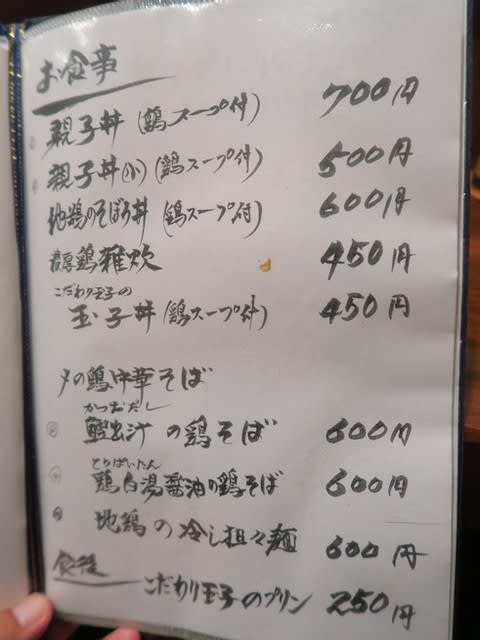 お食事
親子丼 (鶏スープ付) 700円
親子丼(小) (鶏スープ付) 500円
地鶏のそぼろ丼 (鶏スープ付) 600円
濃厚鶏雑炊 450円
こだわり玉子の
玉子丼 (鶏スープ付) 450円
夕の鶏中華そば
かつおだし
鰹出汁の鶏そば 600円
とりぱいたん
鶏白湯醤油の鶏そば 600円
地鶏の冷し担々麺 600円
食後
こだわり玉子のプリン 250円